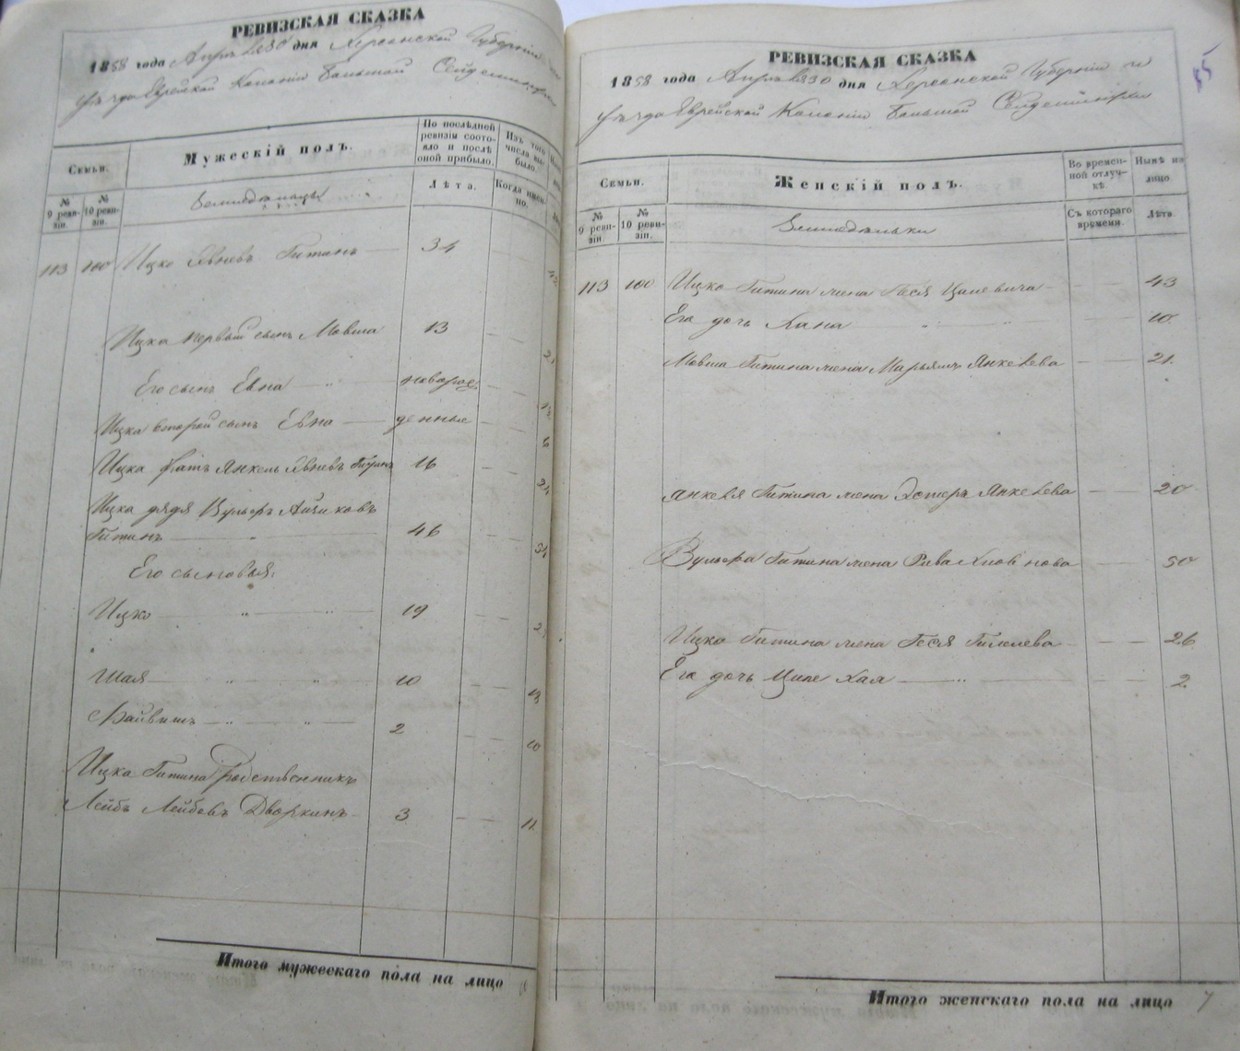 РЕВИЗСКАЯ СКАЗКА
1858 года Апреля 30 дня Херсонской Губерніи
уѣзда Еврейской Колоніи Большой Сейдеминухи
Семьи.
№ 9 ревизіи.
№ 10 ревизіи.
Мужескій полъ.
По послѣдней ревизіи состояло и послѣ оной прибыло.
Лѣта.
Изъ того числа выбыло.
Когда именно.
Земледѣльцы
113 100 Ицко Евневъ Гитинъ 34
Ицка первый сынъ Мовша 13
Его сынъ Евна новорож
Ицка второй сынъ Евна денные
Ицка братъ Янкель Евневъ Гитинъ 16 24
Ицка дядя Вульфъ Айзиковъ
Гитинъ 46
Его сыновья:
Ицко 19
Шая 10
2 10
Ицка Гитина родственникъ
Лейбъ Лейбовъ Дворкинъ 3 11
Итого мужескаго пола на лицо
РЕВИЗСКАЯ СКАЗКА
1858 года Апреля 30 дня Херсонской Губерніи и
уѣзда Еврейской Колоніи Большой Сейдеминухи
Семьи.
№ 9 ревизіи.
№ 10 ревизіи.
Женскій полъ.
Во временной отлучкѣ.
Съ котораго времени.
Нынѣ на лицо.
Лѣта.
Земледѣльки
113 100 Ицка Гитина жена Геся 43
Его дочь Хана 10
Мовша Гитина жена Марьямъ Янкелева 21
Янкеля Гитина жена Эстеръ Янкелева 20
Вульфа Гитина жена Рива 50
Ицко Гитина жена Геся Гилелева 26
Его дочь Ципе Хая 2
Итого женскаго пола на лицо 7